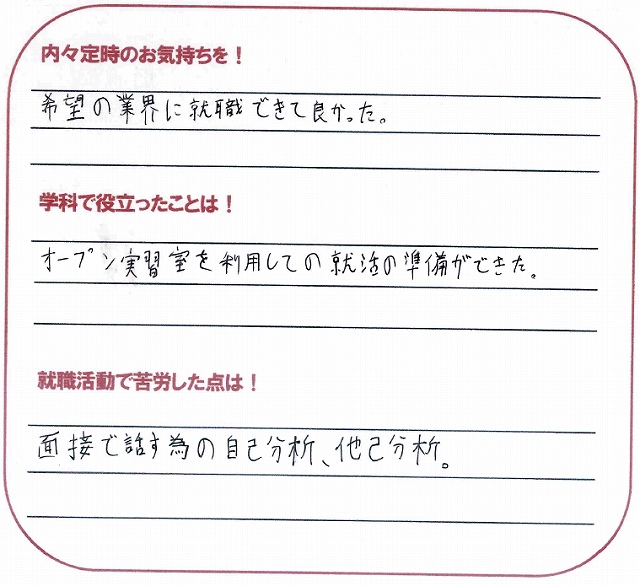 内々定時のお気持ちを！
希望の業界に就職できて良かった。
学科で役立ったことは！
オープン実習室を利用しての就活の準備ができた。
就職活動で苦労した点は！
面接で話す為の自己分析、他己分析。